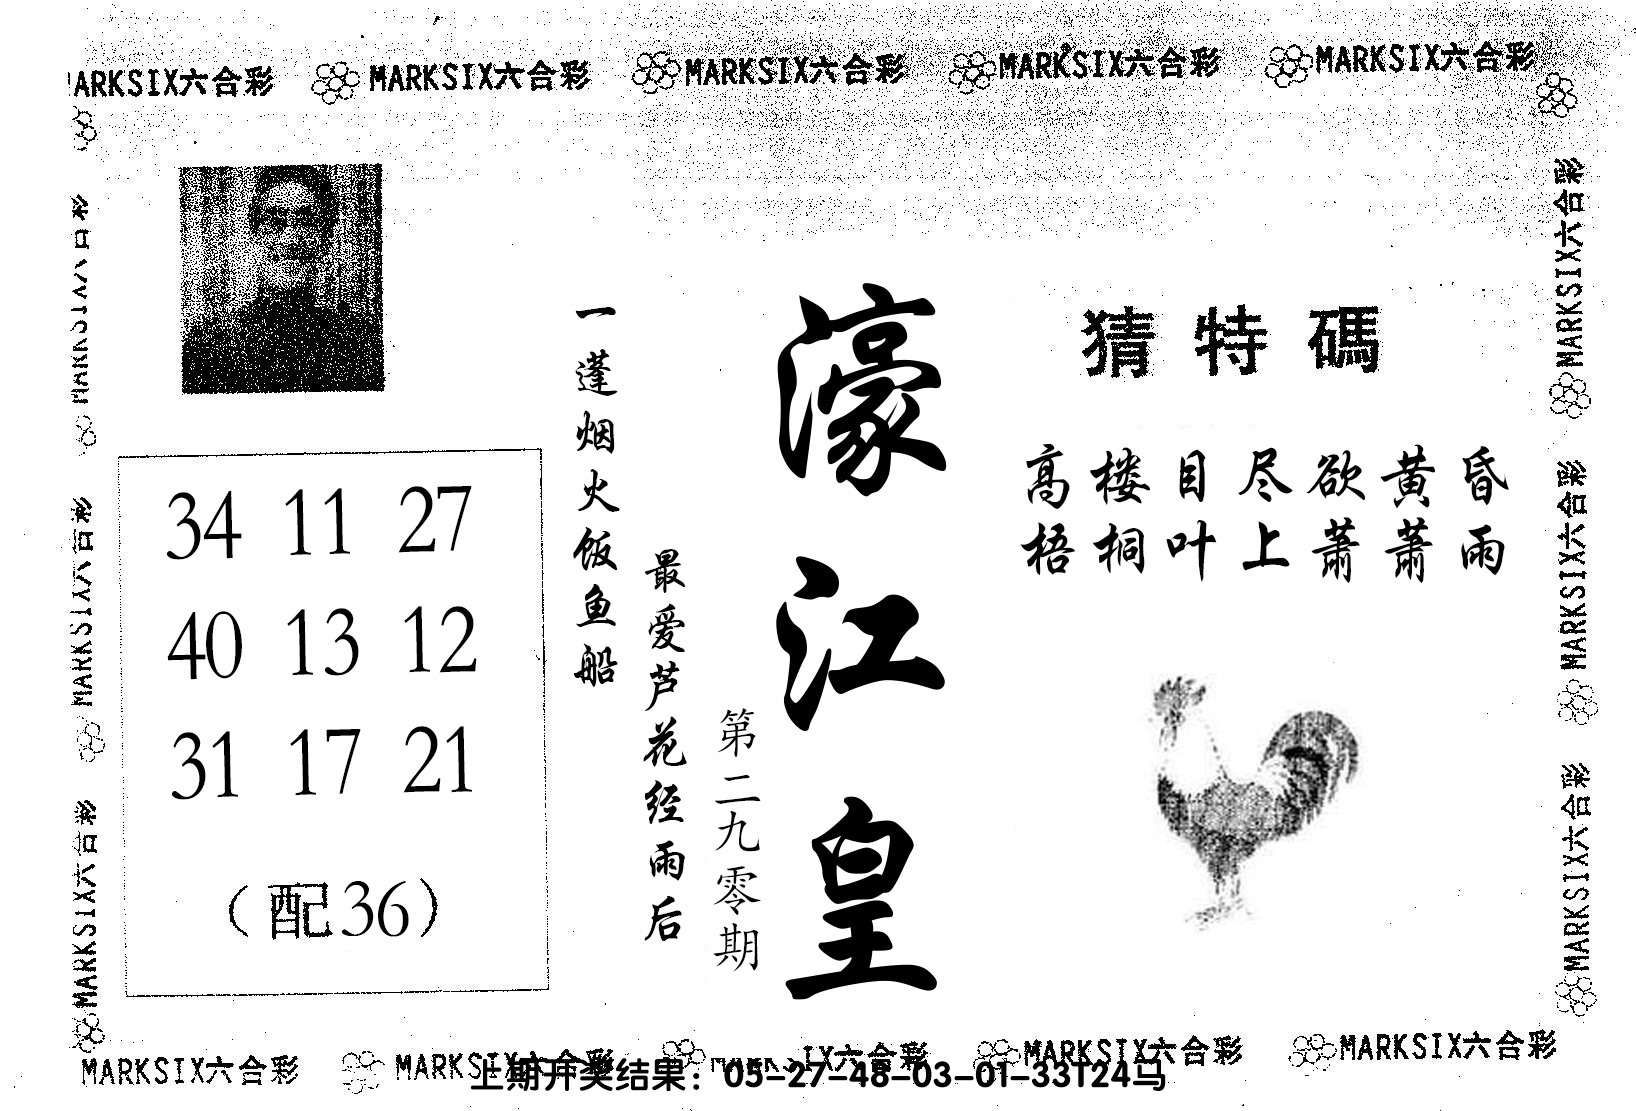 MARKSIX六合彩 MARKSIX六合彩 MARKSIX六合彩 MARKSIX六合彩
MARKSIX六合彩
MARKSIX六合彩
MARKSIX六合彩
MARKSIX六合彩
MARKSIX六合彩
猜特碼
高楼目尽欲黄昏
梧桐叶上萧萧雨
濠江皇
第二九零期
最爱芦花经雨后
一蓬烟火饭鱼船
34 11 27
40 13 12
31 17 21
（配36）
MARKSIX六合彩 MARKSIX六合彩 MARKSIX六合彩 MARKSIX六合彩
上期开奖结果：05-27-48-03-01-33T24马